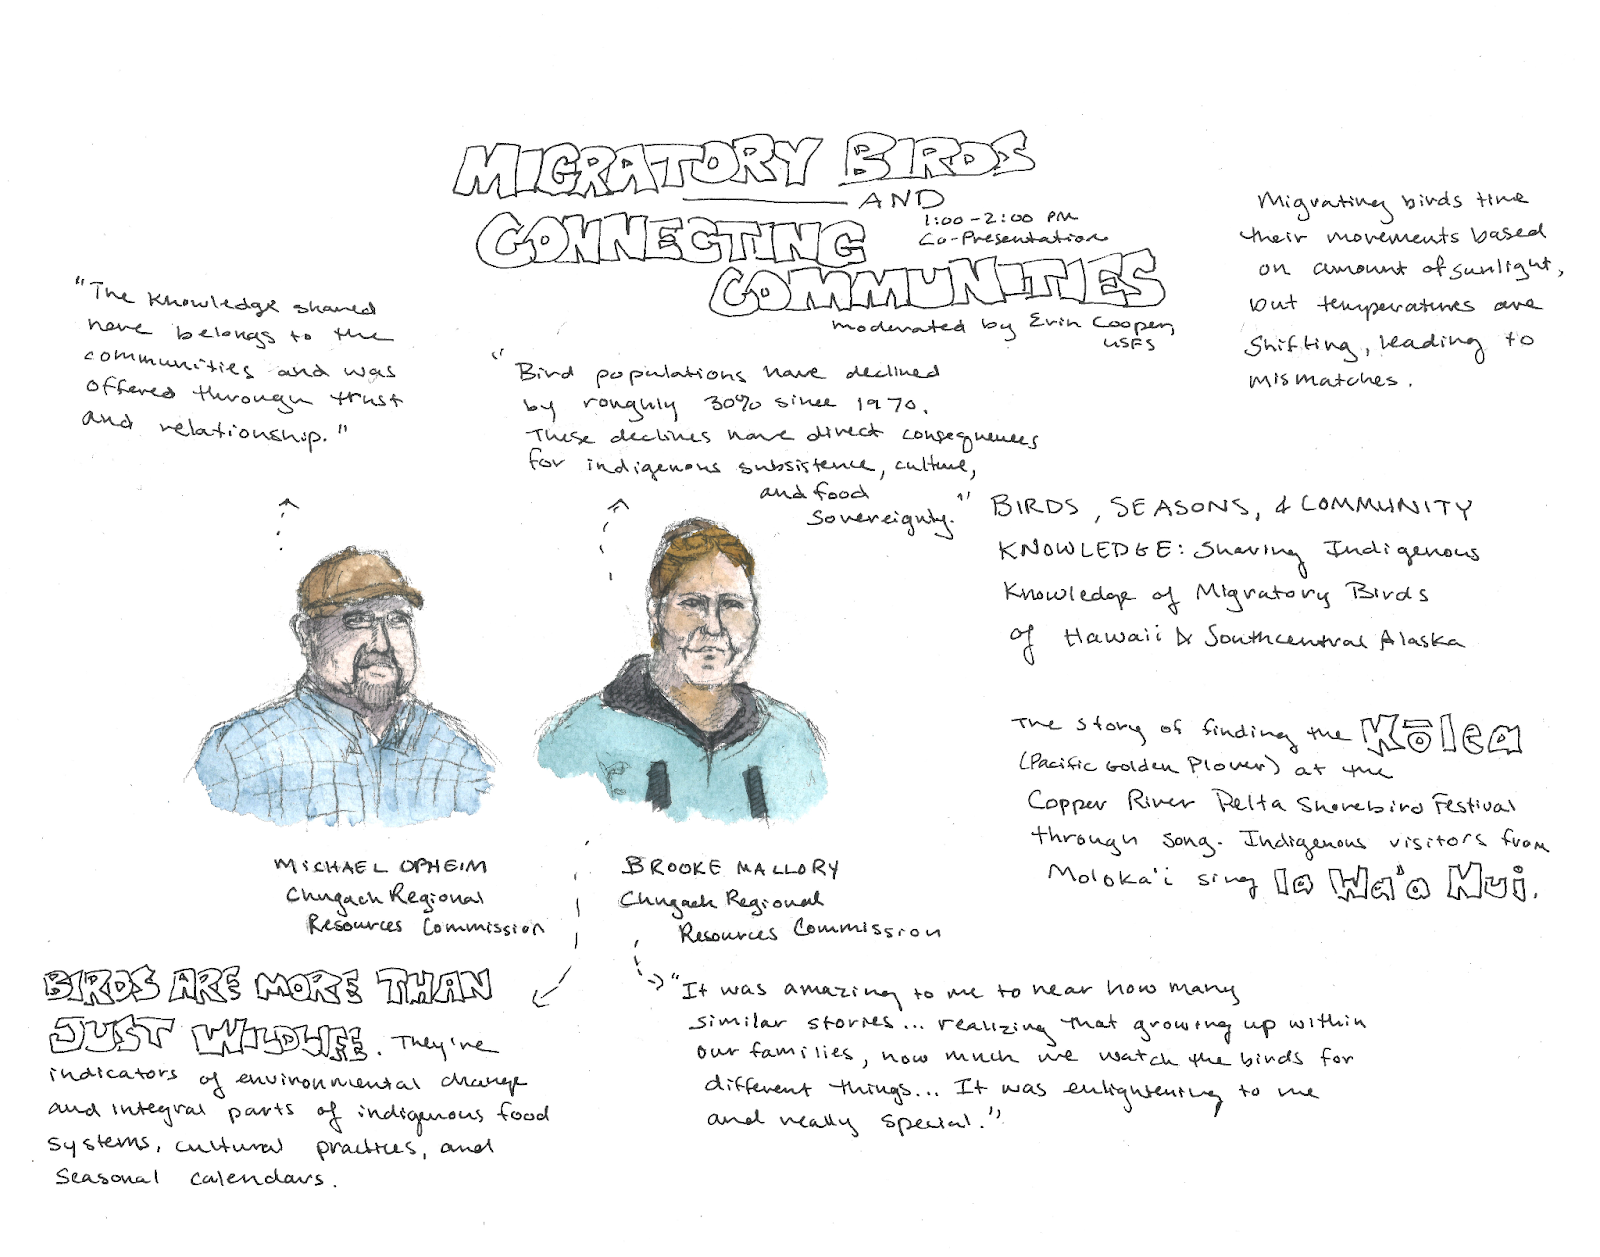 MIGRATORY BIRDS
AND
CONNECTING
1:00-2:00 PM
Co-Presentation
COMMUNITIES
moderated by Erin Cooper,
USFS
Migrating birds time
their movements based
on amount of sunlight,
but temperatures are
shifting, leading to
mismatches.
"The knowledge shared
here belongs to the
communities and was
offered through trust
and relationship."
"Bird populations have declined
by roughly 30% since 1970.
These declines have direct consequences
for indigenous subsistence, culture,
and food
sovereignty."
BIRDS, SEASONS, & COMMUNITY
KNOWLEDGE: Sharing Indigenous
Knowledge of Migratory Birds
of Hawaii & Southcentral Alaska
The story of finding the Kōlea
(Pacific Golden Plover) at the
Copper River Delta Shorebird Festival
through song. Indigenous visitors from
Moloka'i sing Ia Wa'a Nui.
MICHAEL OPHEIM
Chugach Regional
Resources Commission
BROOKE MALLORY
Chugach Regional
Resources Commission
BIRDS ARE MORE THAN
JUST WILDLIFE. They're
indicators of environmental change
and integral parts of indigenous food
systems, cultural practices, and
seasonal calendars.
"It was amazing to me to hear how many
similar stories... realizing that growing up within
our families, how much we watch the birds for
different things... It was enlightening to me
and really special."